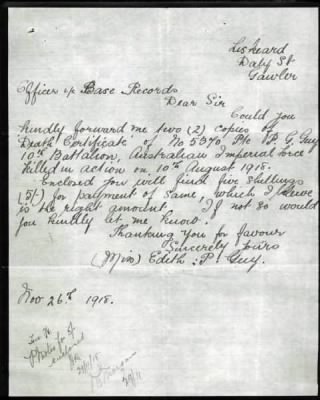 Liskeard
Daly St
Gawler
Officer i/c Base Records
Dear Sir
Could you
kindly forward me two (2) copies of
Death Certificate of No 5370 Pte P. G. Guy
10th Battalion, Australian Imperial Force
Killed in action on 10th August 1918.
Enclosed you will find five shillings
(5/-) for payment of same, which I believe
is the right amount, if not so would
you kindly let me know.
Thanking you for favour
Sincerely yours
(Miss) Edith P. Guy.
Nov 26th 1918.